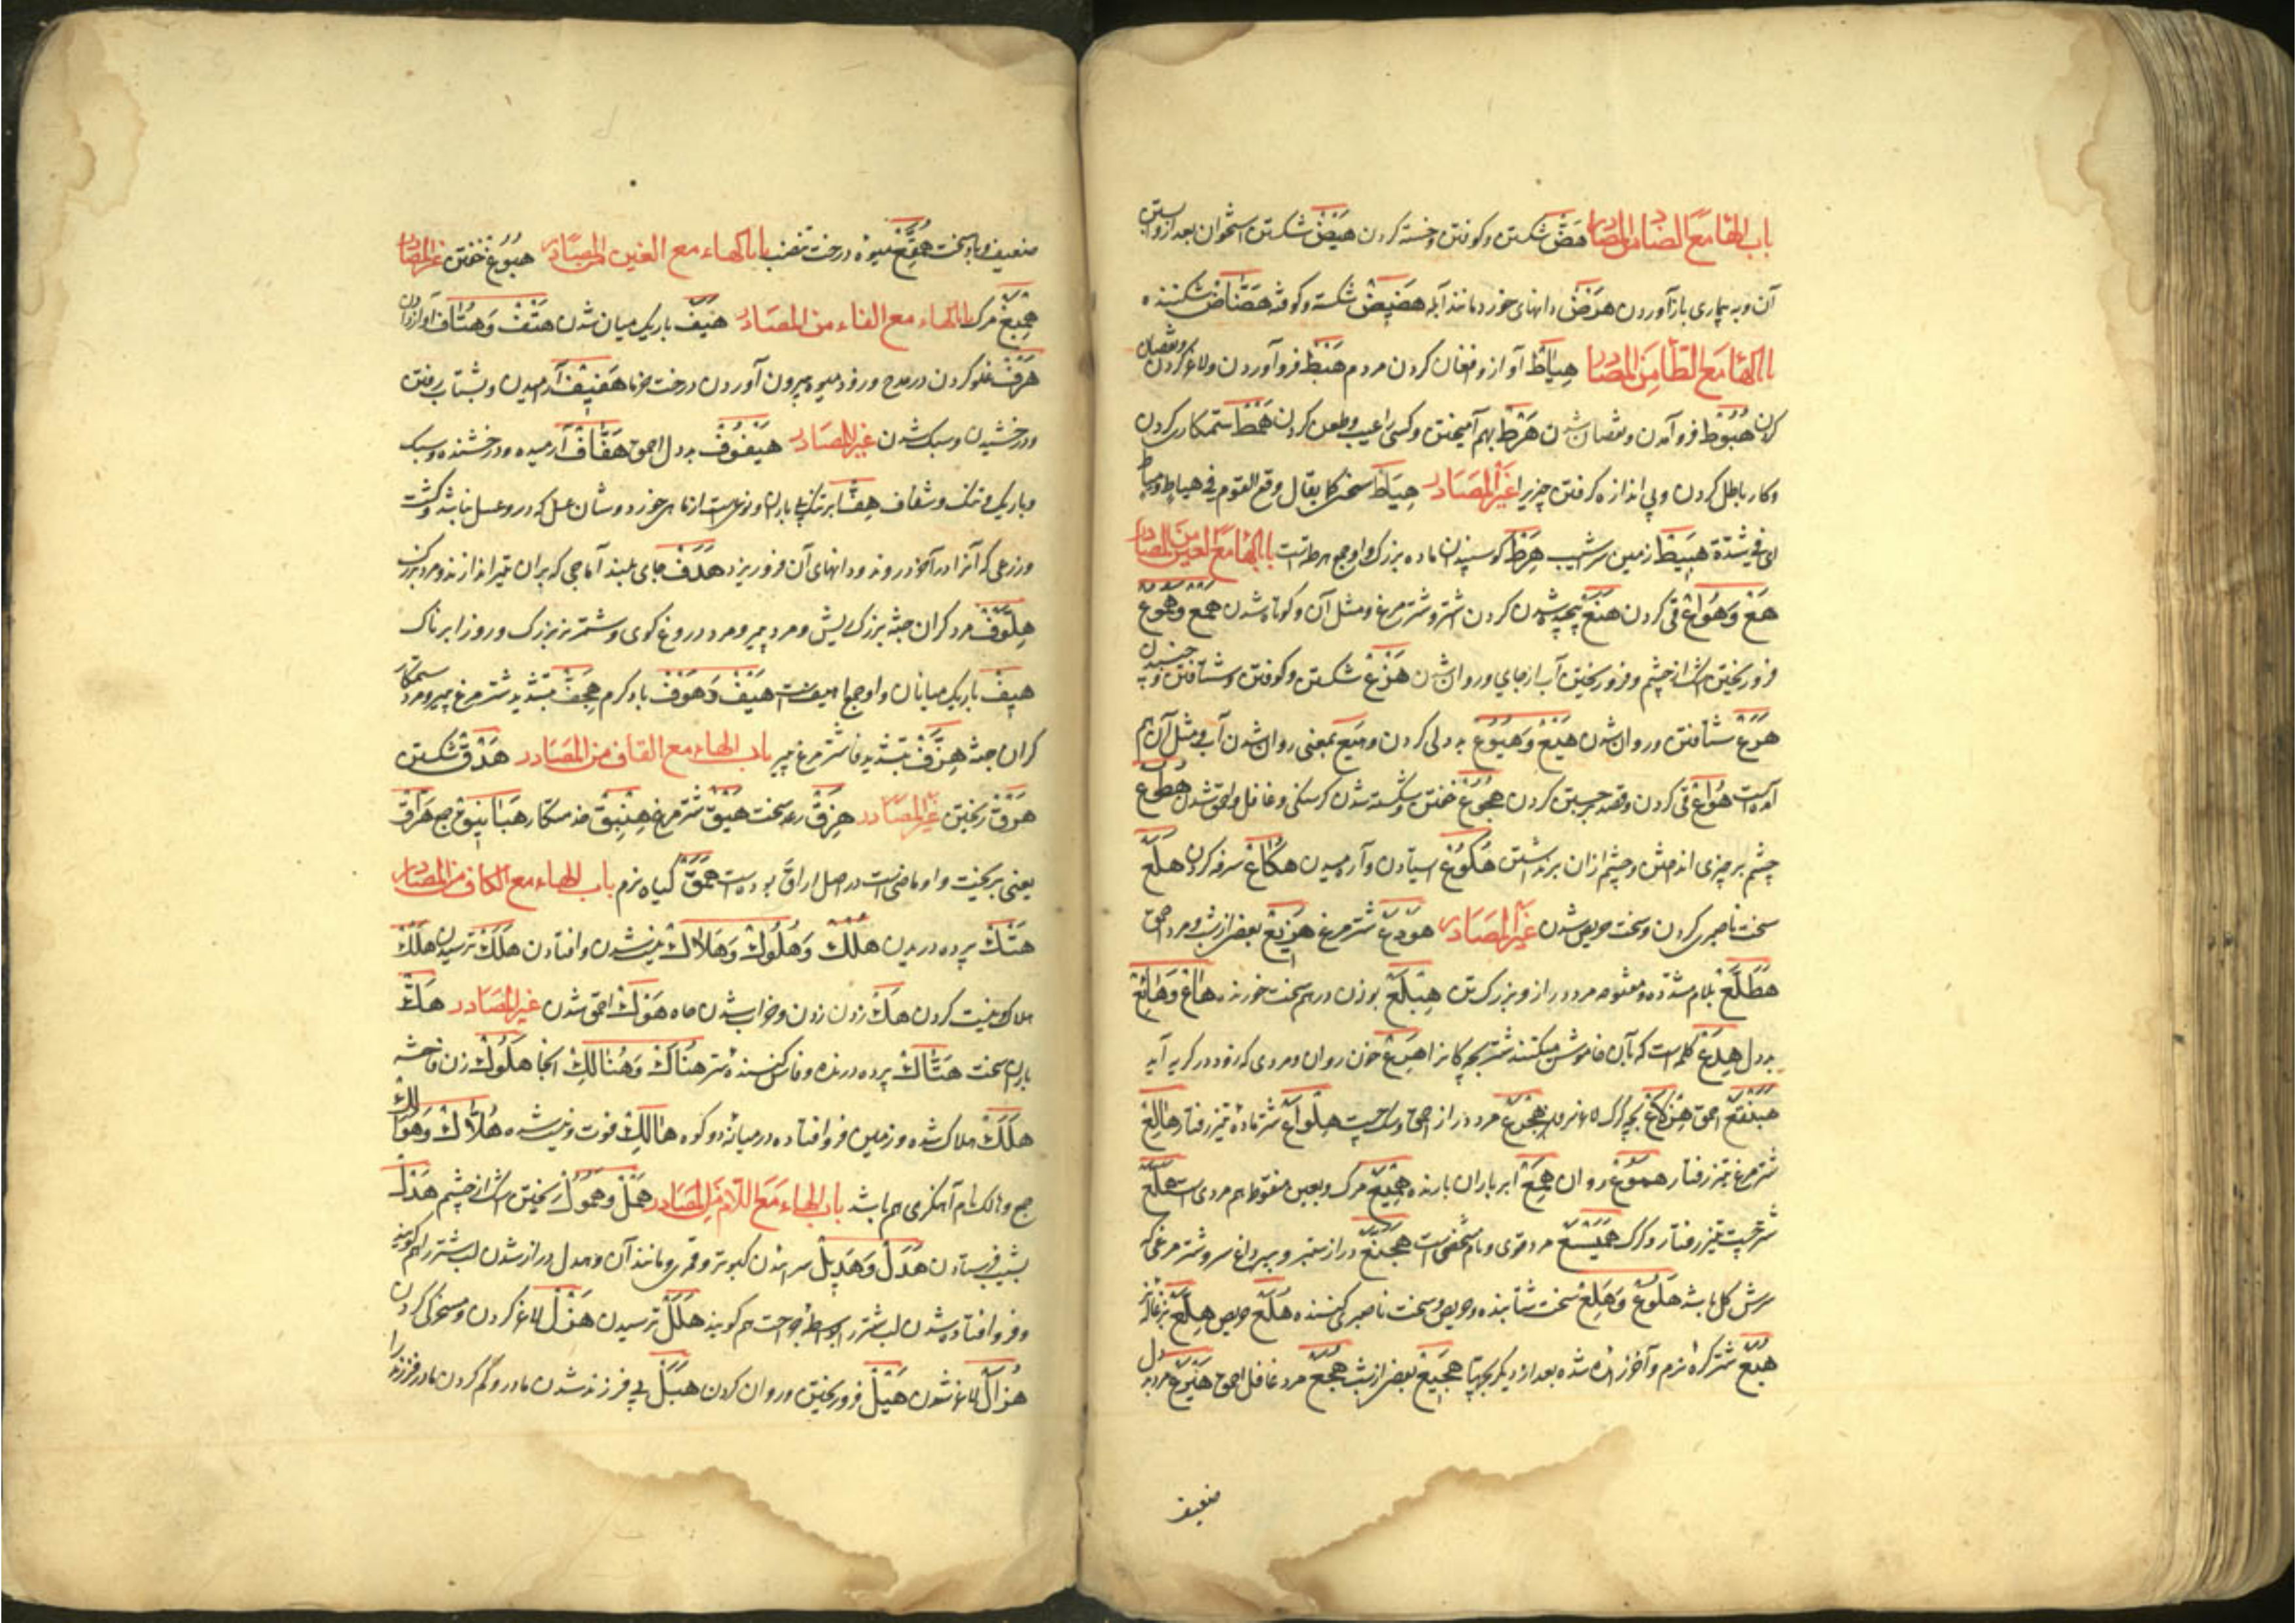 باب الهاء مع الضاد من المصادر هَضّ شکستن و کوفتن و خسته کردن هَیْض شکستن استخوان بعد از و ابستن
آن و به بیماری باز آوردن هَرَض دانهای خورد مانند آبله هَضِیض شکسته و کوفته هَضّاض شکننده
باب الهاء مع الطاء من المصادر هِیَاط آواز و افغان کردن مردم هَبْط فرو آوردن و لاغر کردن و نقصان
کردن هُبُوط فرو آمدن و نقصان شدن هَرْط بهم آمیختن و کسی را عیب و طعن کردن هَمْط ستمکاری کردن
و کار باطل کردن و بی اندازه گرفتن چیزی را غیر المصادر هِیَاط سختی کما یقال وقع القوم فی هیاط و میاط
ای فی شدّة هَبِیط زمین سرشیب هِرْط گوسپندان ماده بزرگ و او جمع هرطه است باب الهاء مع العین من المصادر
هَعّ وَ هُوَاع قی کردن هَنَع پیچیده شدن گردن اشتر و شتر مرغ و مثل آن و کوتاه شدن هَمْع و هُمُوع
فرو ریختن اشک از چشم و فرو ریختن آب از جای و روان شدن هَزْع شکستن و کوفتن و شتافتن و جنبیدن
هَرَع شتافتن و روان شدن هَیْع وَ هُیُوع بد دلی کردن و هیع بمعنی روان شدن آب و مثل آن هم
آمده است هُوَاع قی کردن و قصد جستن کردن هُجُوع خفتن و شکسته شدن گرسنگی و غافل و احمق شدن هُطُوع
چشم بر چیزی انداختن و چشم از آن برنداشتن هُکُوع استادن و آرمیدن هُکَاع سرفه کردن هَلَع
سخت ناصبری کردن و سخت حریص شدن غیر المصادر هَوْدَع شتر مرغ هَزِیع بعضی از شب و مرد احمق
هَطَلَّع بلام مشدده مفتوحه مرد دراز و بزرگ تن هِبْلَع بوزن درهم سخت خورنده هَاع وَ هَائِع
بد دل هِدَع کلمه است که بآن خاموش میکنند شتر بچگانرا هَمِع خون روان و مردی که زود در گریه آید
هَبَنْقَع احمق
شتر مرغ تیز رفتار هَمُوع روان هَمِع ابر باران بارنده هِمْیَع مرگ و بغین منقوطه هم مروی است هَمَلَّع
شتر چست تیز رفتار و گرگ هَمَیْسَع مرد قوی و نام شخصی است هَجَنَّع دراز ستبر و پیر داغ سر و شتر مرغی که
سرش کل باشد هَلُوع وَ هَلِع سخت شتابنده و حریص و سخت ناصبری کننده هُلَع حریص هِلَّع بزغاله نر
هُبَع شتر کره نرم و آخر زائیده شده بعد از دیگر بچها هَجِیع بعضی از شب هُجَع مرد غافل احمق مرد بد دل
ضعیف
ضعیف و باد سخت هُقَّع میوه درخت تنضب باب الهاء مع الغین من المصادر هُبُوغ خفتن غیر المصادر
هِمْیَغ مرگ باب الهاء مع الفاء من المصادر هَیَف باریک میان شدن هَتْف وَ هُتَاف آواز دادن
هَرْف غلو کردن در مدح و زود میوه بیرون آوردن درخت خرما هَفِیف آرمیدن و بشتاب رفتن
و درخشیدن و سبک شدن غیر المصادر هَیْفُوف بد دل احمق هَفّاف آرمیده و درخشنده و سبک
و باریک و تنک و شفاف هِفّ ابر تنک بی باران و نوعیست از ماهی خورد و شان عسل که درو عسل نباشد و کشت
و زرعی که آنرا در آخر دروند و دانهای آن فرو ریزد هَدَف جای بلند آماجی که بران تیر اندازند و مرد بزرگ
هِلَّوْف مرد گران جثه بزرگ ریش و مرد پیر و مرد دروغ گوی و شتر نر بزرگ و روز ابرناک
هِیف باریک میانان و او جمع اهیف است هَیْف وَ هَوْف باد گرم هِجَفّ بتشدید شتر مرغ پیر و مرد ستمکار
گران جثه هِزَفّ بتشدید فا شتر مرغ پیر باب الهاء مع القاف من المصادر هَدْق شکستن
هَرْق ریختن غیر المصادر هَزِق رعد سخت هَیْق شتر مرغ هِبْنِیق خدمتکار هَبَانِیق جمع هَرَاقَ
یعنی بریخت و او ماضی است در اصل اراق بوده است هَمَق گیاه نرم باب الهاء مع الکاف من المصادر
هَتْک پرده دریدن هُلْک وَ هُلُوک وَ هَلَاک نیست شدن و افتادن هَلَک ترسیدن هَلْک
هلاک و نیست کردن هَکّ زدن زدن و خراب شدن چاه هَوَک احمق شدن غیر المصادر هَکّ
باران سخت هَتّاک پرده درنده و فاش کننده ستر هُنَاک وَ هُنَالِک آنجا هَلُوک زن فاحشه
هَلَک هلاک شده و زمین فرو افتاده در میانه دو کوه هَالِک فوت و نیست شده هُلّاک وَ هَوَالِک
جمع و هالک نام آهنگری هم باشد باب الهاء مع اللام من المصادر هَمْل و هُمُول ریختن اشک از چشم هَدْل
بشیب فرستادن هَدْل وَ هَدِیل سرائیدن کبوتر و قمری و مانند آن و هدل دراز شدن لب شتر را هم گویند
و فرو افتاده شدن لب شتر را بواسطه جراحت هم گویند هَلَل ترسیدن هَزْل لاغر کردن و مسخرگی کردن
هُزَال لاغر شدن هَیْل فرو ریختن و روان کردن هَبَل بی فرزند شدن مادر و گم کردن مادر فرزند را